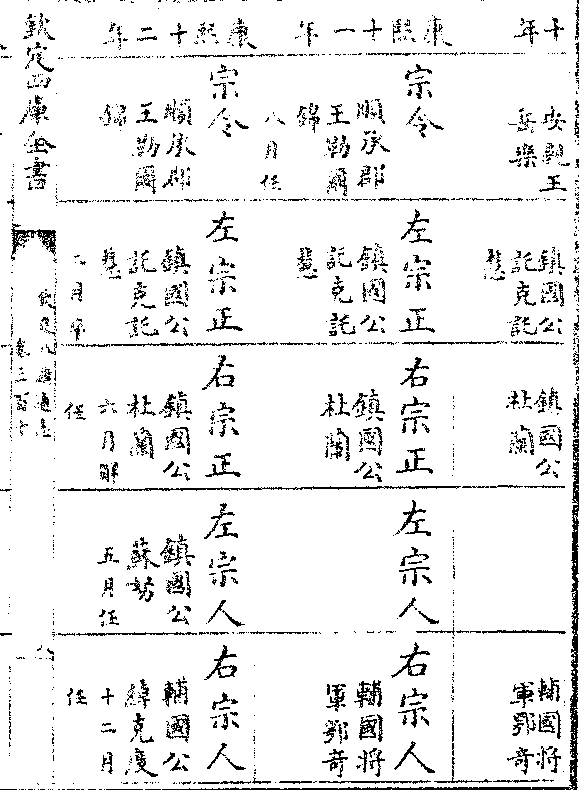 十年
安親王
岳樂
鎮國公
託克託
慧
鎮國公
杜蘭
輔國將
軍鄂奇
康熙十一年
宗令
順承郡
王勒爾
錦
八月任
左宗正
鎮國公
託克託
慧
右宗正
鎮國公
杜蘭
左宗人
右宗人
輔國將
軍鄂奇
康熙十二年
宗令
順承郡
王勒爾
錦
左宗正
鎮國公
託克託
慧
右宗正
鎮國公
杜蘭
六月解
任
左宗人
鎮國公
蘇努
五月任
右宗人
輔國公
綽克度
十二月
任
欽定四庫全書
欽定八旗通志
卷三百十